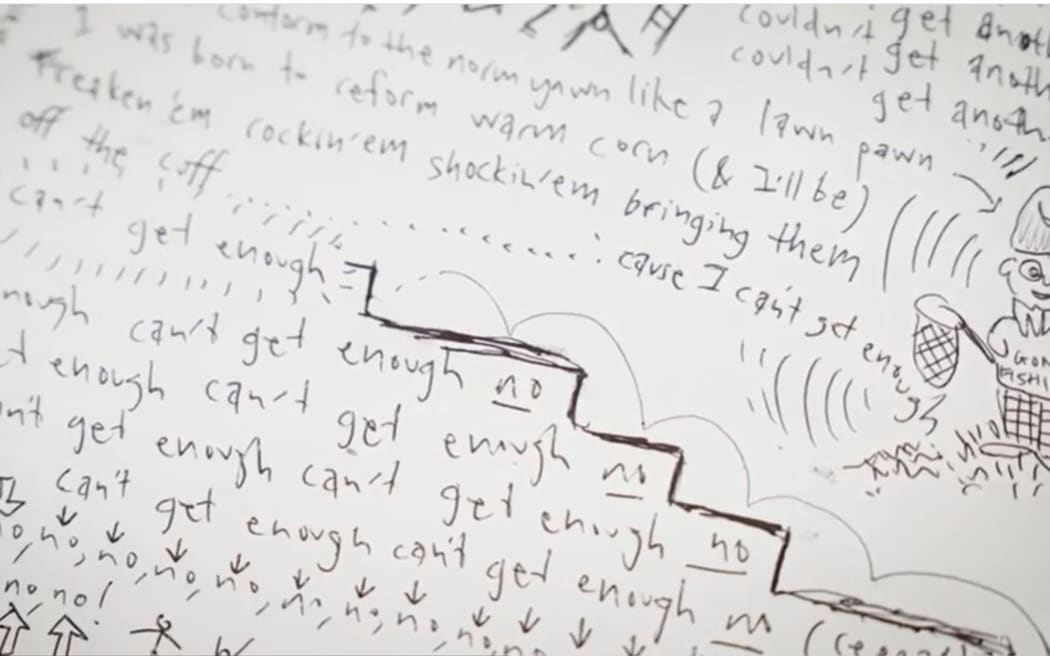 couldn't get anoth
couldn't get anoth
get anoth
conform to the norm yawn like a lawn pawn
I was born to reform warm corn (& I'll be)
Freaken 'em rockin' em shockin' em bringing them
off the cuff cause I can't get enough
can't get enough
nough can't get enough no
t enough can't get enough no
n't get enough can't get enough no
can't get enough can't get enough no
no, no, no, no, no, no, no, no, no,
no, no!
GON
FISHI